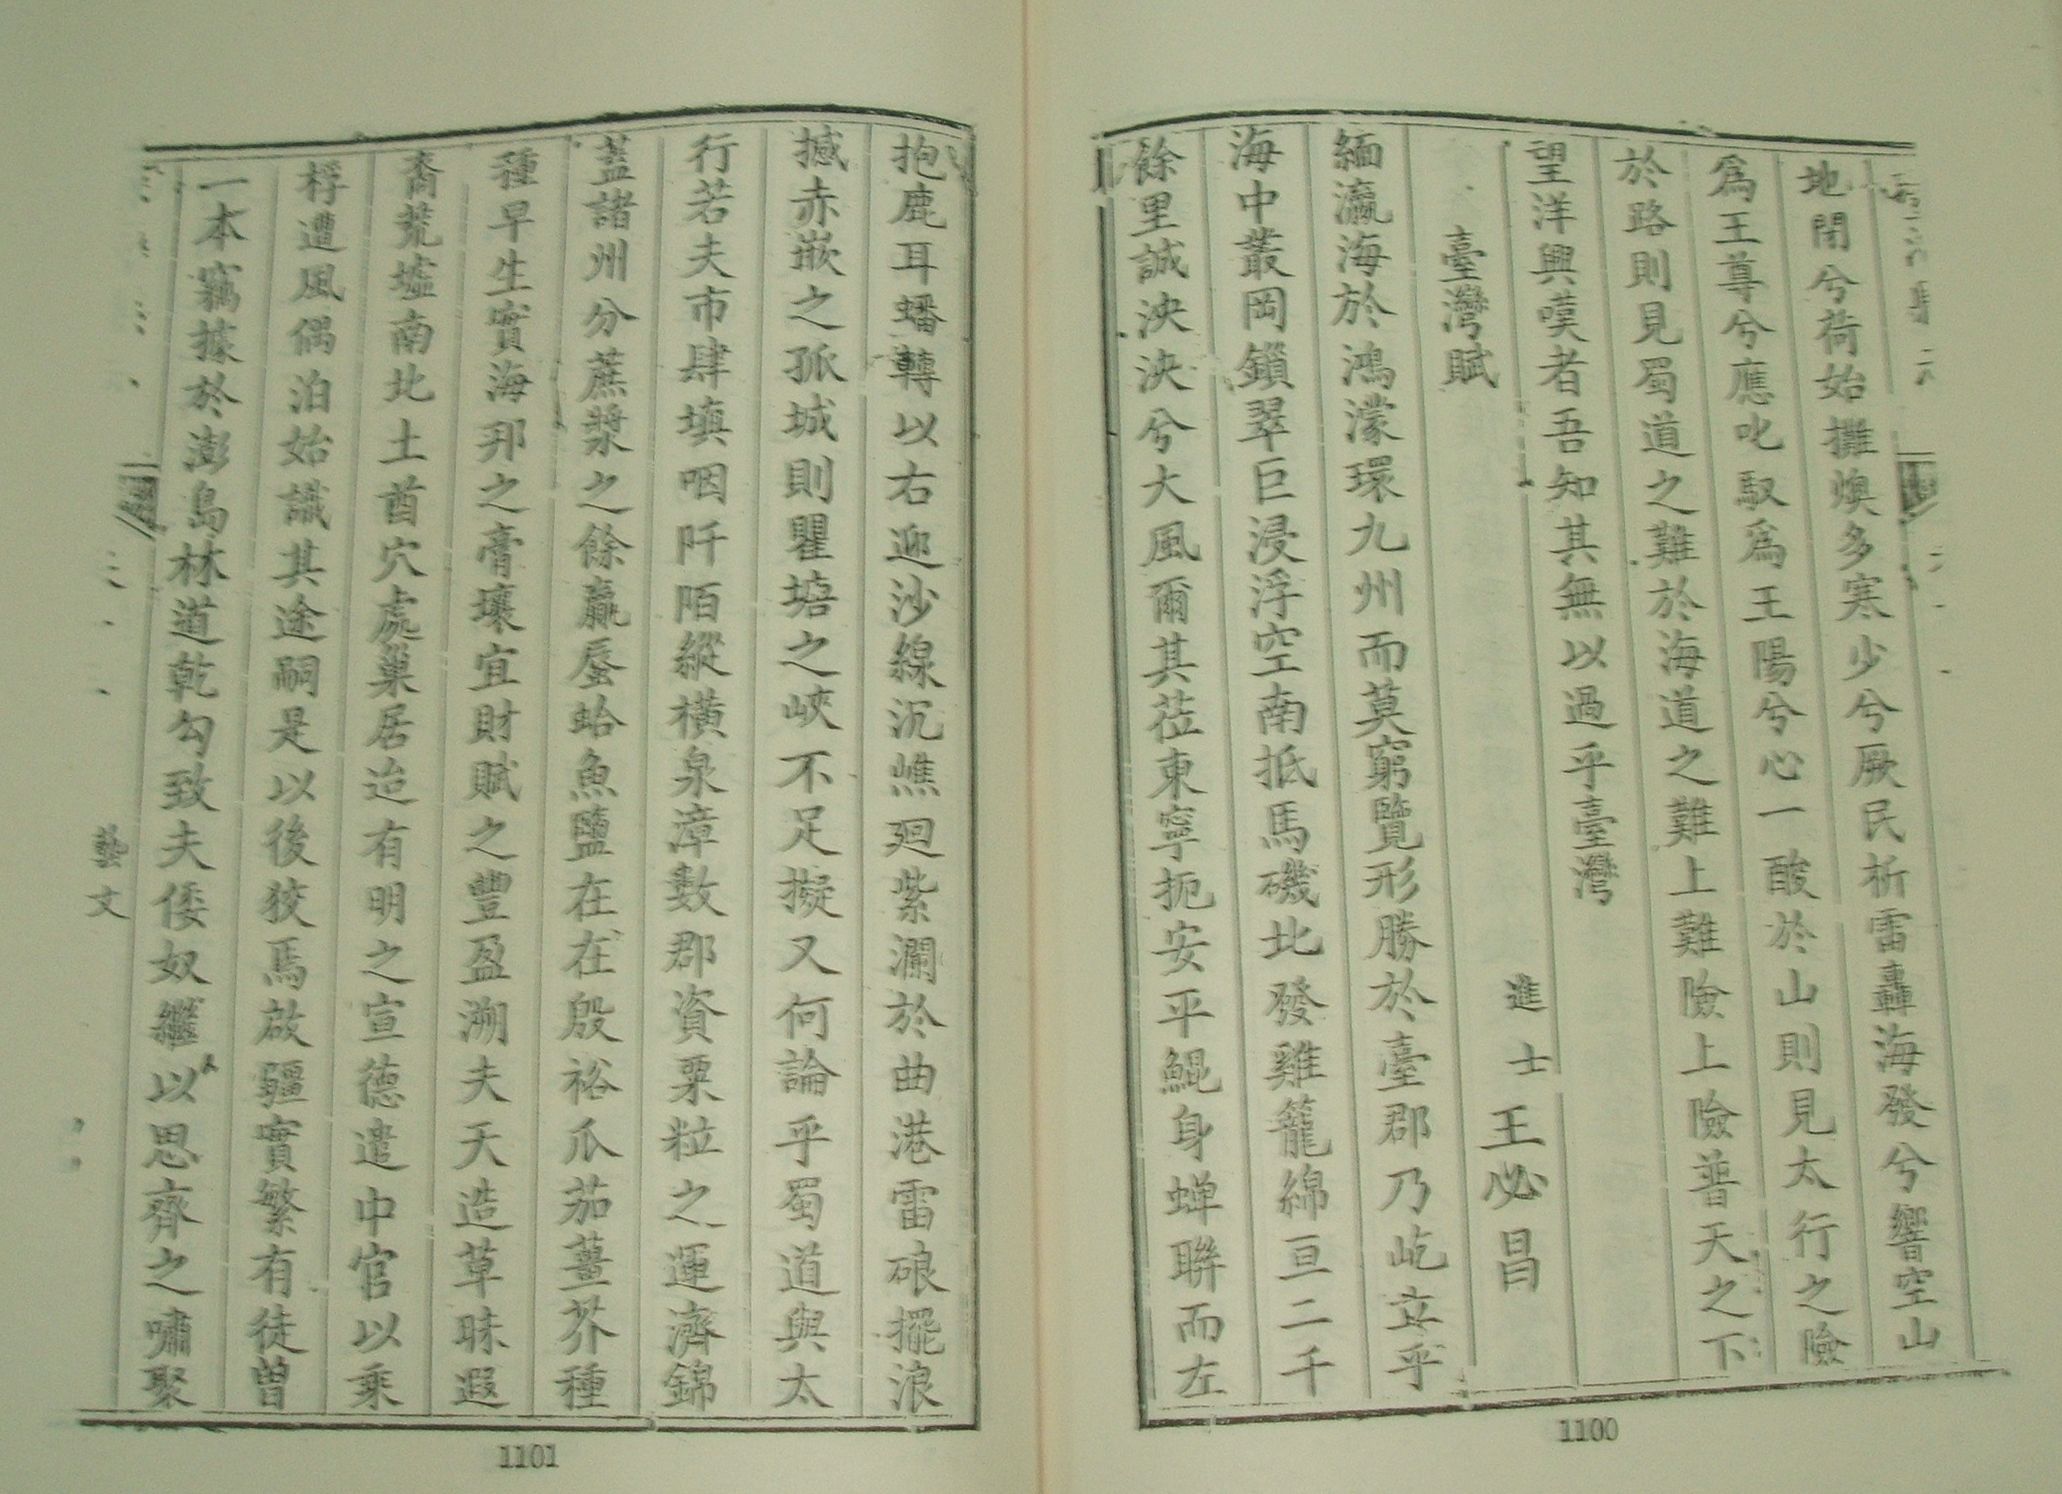 地閉兮荷始攤煥多寒少兮厥民析雷轟海發兮響空山
爲王尊兮應叱馭爲王陽兮心一酸於山則見太行之險
於路則見蜀道之難於海道之難上難險上險普天之下
望洋興嘆者吾知其無以過乎臺灣
臺灣賦
進士王必昌
緬瀛海於鴻濛環九州而莫窮覽形勝於臺郡乃屹立乎
海中叢岡鎖翠巨浸浮空南抵馬磯北發雞籠綿亘二千
餘里誠泱泱兮大風爾其莅東寧扼安平鯤身蟬聯而左
1100
抱鹿耳蟠轉以右迎沙線沉礁廻紫瀾於曲港雷硠擺浪
撼赤嵌之孤城則瞿塘之峽不足擬又何論乎蜀道與太
行若夫市肆填咽阡陌縱橫泉漳數郡資粟粒之運濟錦
蓋諸州分蔗漿之餘贏蜃蛤魚鹽在在殷裕瓜茄薑芥種
種早生實海邦之膏壤宜財賦之豐盈溯夫天造草昧遐
裔荒墟南北土酋穴處巢居迨有明之宣德遣中官以乘
桴遭風偶泊始識其途嗣是以後狡焉啟疆實繁有徒曾
一本竊據於澎島林道乾勾致夫倭奴繼以思齊之嘯聚
藝文
1101